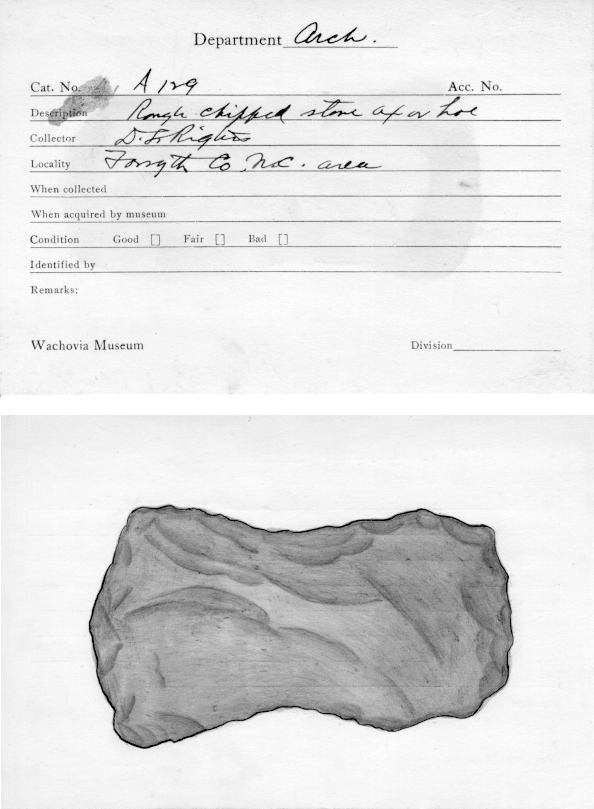 Department Arch.
Cat. No. A 129 Acc. No.
Description Rough chipped stone ax or hoe
Collector D. L. Rights
Locality Forsyth Co, N.C. area
When collected
When acquired by museum
Condition Good [] Fair [] Bad []
Identified by
Remarks:
Wachovia Museum Division